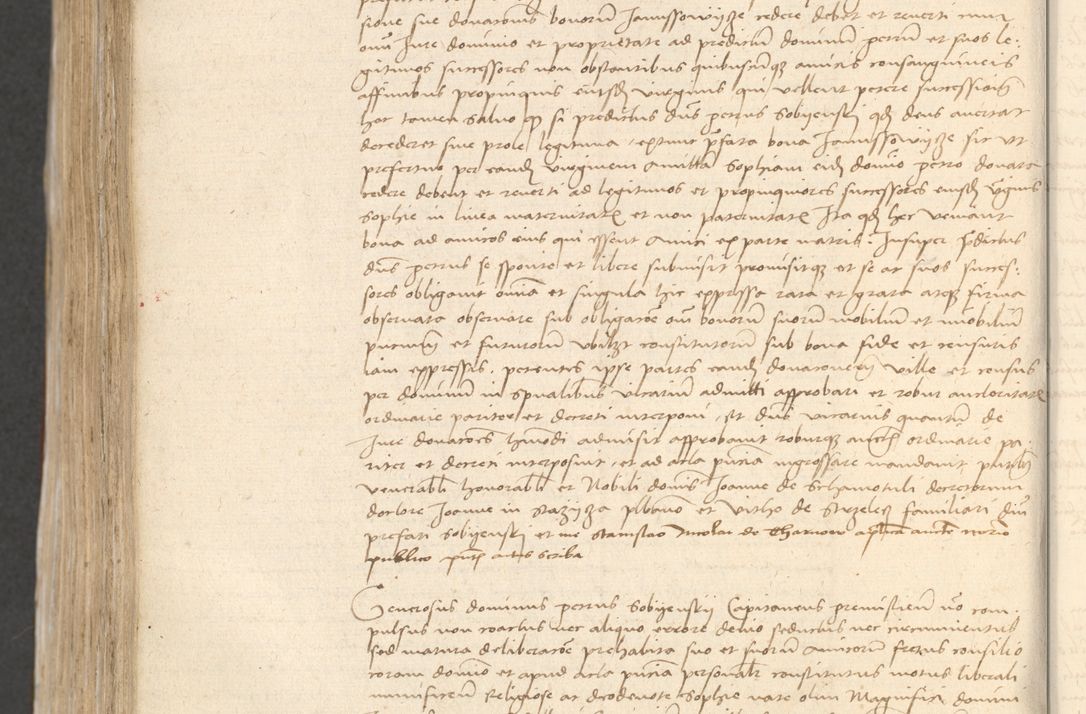 sione sue donacionis bonorum Janussowycze cedere debet et reverti cum
omni Jure dominio et proprietate ad predictum dominum petrum et suos le-
gitimos successores non obstantibus quibuscumque amicis consanguineis
affinibus propinquis eiusdem virginis qui vellent petere successionem
hoc tamen salvo quod si predictus dns petrus Sobyenski quod deus avertat
decederet sine prole legitima extunc prefata bona Janussowycze sic ut
prefertur per eandem virginem Sophiam eidem domino petro donata
cedere debent et reverti ad legitimos et propinquiores successores eiusdem virginis
Sophie in linea maternitatis et non paternitatis Ita quod hec veniant
bona ad amicos eius qui essent amici ex parte matris. Insuper predictus
dns petrus se sponte et libere submisit promisitque et se ac suos succes-
sores obligavit omnia et singula hic expressa rata et grata atque firma
observata observare sub obligacione omnium bonorum suorum mobilium et immobilium
presencium et futurorum ubilibet constitutorum sub bona fide et censuris
iam expressis. petentes ipse partes eandem donacionem ville et census
per dominum in spualibus vicarium admitti approbari et robur auctoritatis
ordinarie pariter et decreti interponi. Et dns vicarius quantum de
Jure donaciones huiusmodi admisit approbavit roburque auctoritatis ordinarie pa-
riter et decreti interposuit, et ad acta presencia ingrossare mandavit presentibus
venerabili honorabili et Nobili dominis Joanne de Schamotuli decretorum
doctore Joanne in plebano et Vitho de Strzelcze familiari dni
prefati Sobyenski et me Stanislao Nicolai de Tharnow aplica auctoritate notario
publico presentis actus scriba
Generosus dominus petrus Sobyenskij Capitaneus premisliensis non com-
pulsus non coactus nec aliquo errore devio seductus nec circumventus
sed matura deliberacione prehabita suo et suorum amicorum fretus consilio
coram domino et apud acta presencia personaliter constitutus motus liberali
munificencia Religiose ac deodevote Sophie nate olim Magnifici domini